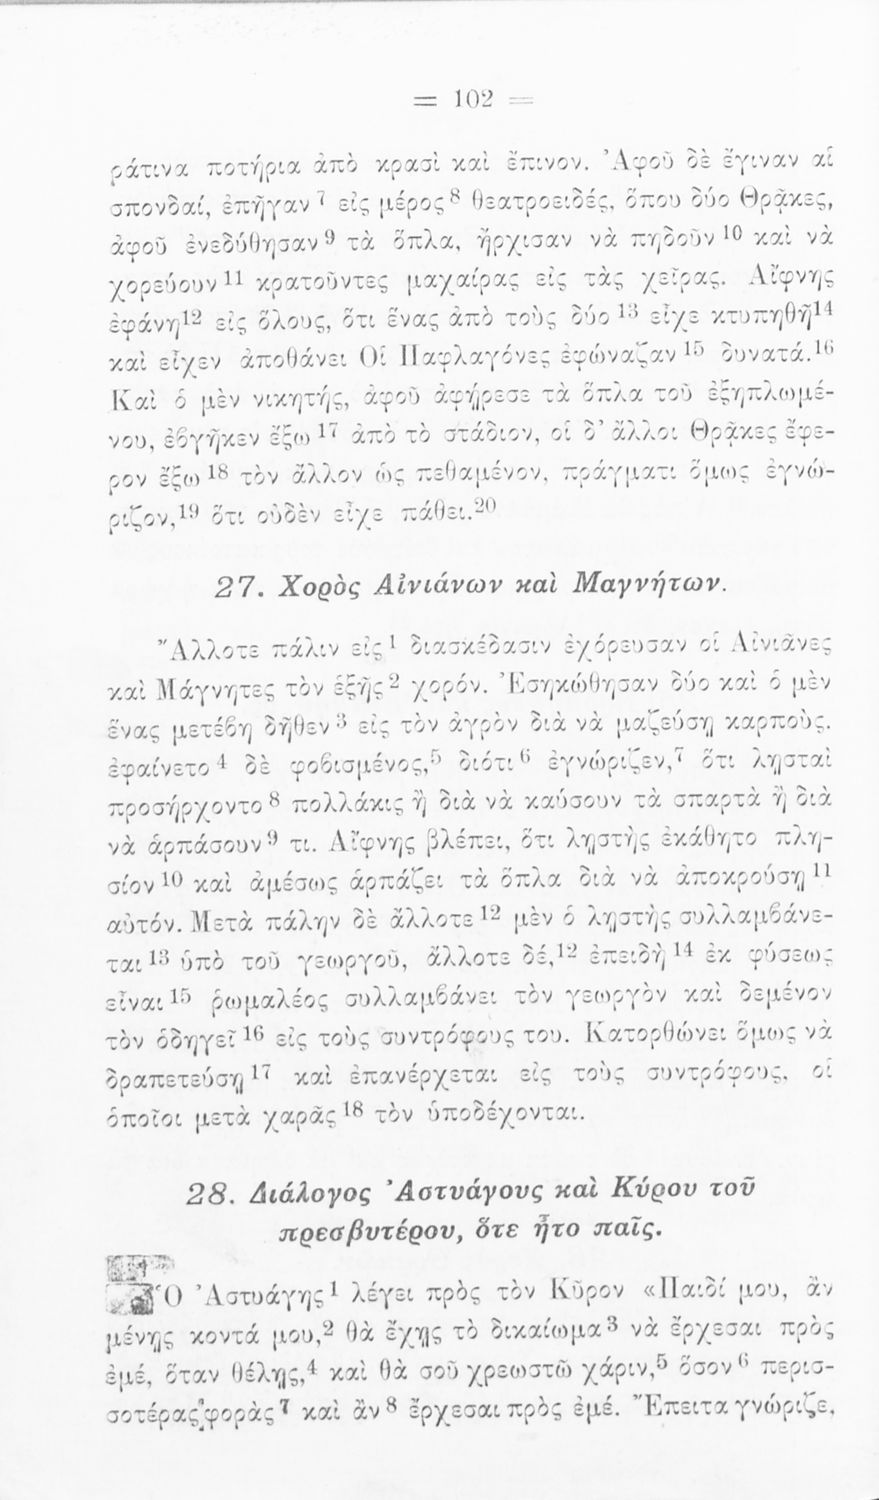 = 102 =
ράτινα ποτήρια ἀπὸ κρασὶ καὶ ἔπινον. Ἀφοῦ δὲ ἔγιναν αἱ
σπονδαί, ἐπῆγαν⁷ εἰς μέρος⁸ θεατροειδές, ὅπου δύο Θρᾷκες,
ἀφοῦ ἐνεδύθησαν⁹ τὰ ὅπλα, ἤρχισαν νὰ πηδοῦν¹⁰ καὶ νὰ
χορεύουν¹¹ κρατοῦντες μαχαίρας εἰς τὰς χεῖρας. Αἴφνης
ἐφάνη¹² εἰς ὅλους, ὅτι ἕνας ἀπὸ τοὺς δύο¹³ εἶχε κτυπηθῆ¹⁴
καὶ εἶχεν ἀποθάνει Οἱ Παφλαγόνες ἐφώναζαν¹⁵ δυνατά.¹⁶
Καὶ ὁ μὲν νικητής, ἀφοῦ ἀφῄρεσε τὰ ὅπλα τοῦ ἐξηπλωμέ-
νου, ἐβγῆκεν ἔξω¹⁷ ἀπὸ τὸ στάδιον, οἱ δ' ἄλλοι Θρᾷκες ἔφε-
ρον ἔξω¹⁸ τὸν ἄλλον ὡς πεθαμένον, πράγματι ὅμως ἐγνώ-
ριζον,¹⁹ ὅτι οὐδὲν εἶχε πάθει.²⁰
27. Χορὸς Αἰνιάνων καὶ Μαγνήτων.
Ἄλλοτε πάλιν εἰς¹ διασκέδασιν ἐχόρευσαν οἱ Αἰνιᾶνες
καὶ Μάγνητες τὸν ἑξῆς² χορόν. Ἐσηκώθησαν δύο καὶ ὁ μὲν
ἕνας μετέβη δῆθεν³ εἰς τὸν ἀγρὸν διὰ νὰ μαζεύσῃ καρποὺς.
ἐφαίνετο⁴ δὲ φοβισμένος,⁵ διότι⁶ ἐγνώριζεν,⁷ ὅτι λῃσταὶ
προσήρχοντο⁸ πολλάκις ἢ διὰ νὰ καύσουν τὰ σπαρτὰ ἢ διὰ
νὰ ἁρπάσουν⁹ τι. Αἴφνης βλέπει, ὅτι λῃστὴς ἐκάθητο πλη-
σίον¹⁰ καὶ ἀμέσως ἁρπάζει τὰ ὅπλα διὰ νὰ ἀποκρούσῃ¹¹
αὐτόν. Μετὰ πάλην δὲ ἄλλοτε¹² μὲν ὁ λῃστὴς συλλαμβάνε-
ται¹³ ὑπὸ τοῦ γεωργοῦ, ἄλλοτε δέ,¹² ἐπειδὴ¹⁴ ἐκ φύσεως
εἶναι¹⁵ ῥωμαλέος συλλαμβάνει τὸν γεωργὸν καὶ δεμένον
τὸν ὁδηγεῖ¹⁶ εἰς τοὺς συντρόφους του. Κατορθώνει ὅμως νὰ
δραπετεύσῃ¹⁷ καὶ ἐπανέρχεται εἰς τοὺς συντρόφους, οἱ
ὁποῖοι μετὰ χαρᾶς¹⁸ τὸν ὑποδέχονται.
28. Διάλογος Ἀστυάγους καὶ Κύρου τοῦ
πρεσβυτέρου, ὅτε ἦτο παῖς.
Ὁ Ἀστυάγης¹ λέγει πρὸς τὸν Κῦρον «Παιδί μου, ἂν
μένῃς κοντά μου,² θὰ ἔχῃς τὸ δικαίωμα³ νὰ ἔρχεσαι πρὸς
ἐμέ, ὅταν θέλῃς,⁴ καὶ θὰ σοῦ χρεωστῶ χάριν,⁵ ὅσον⁶ περισ-
σοτέρας φορὰς⁷ καὶ ἂν⁸ ἔρχεσαι πρὸς ἐμέ. Ἔπειτα γνώριζε,